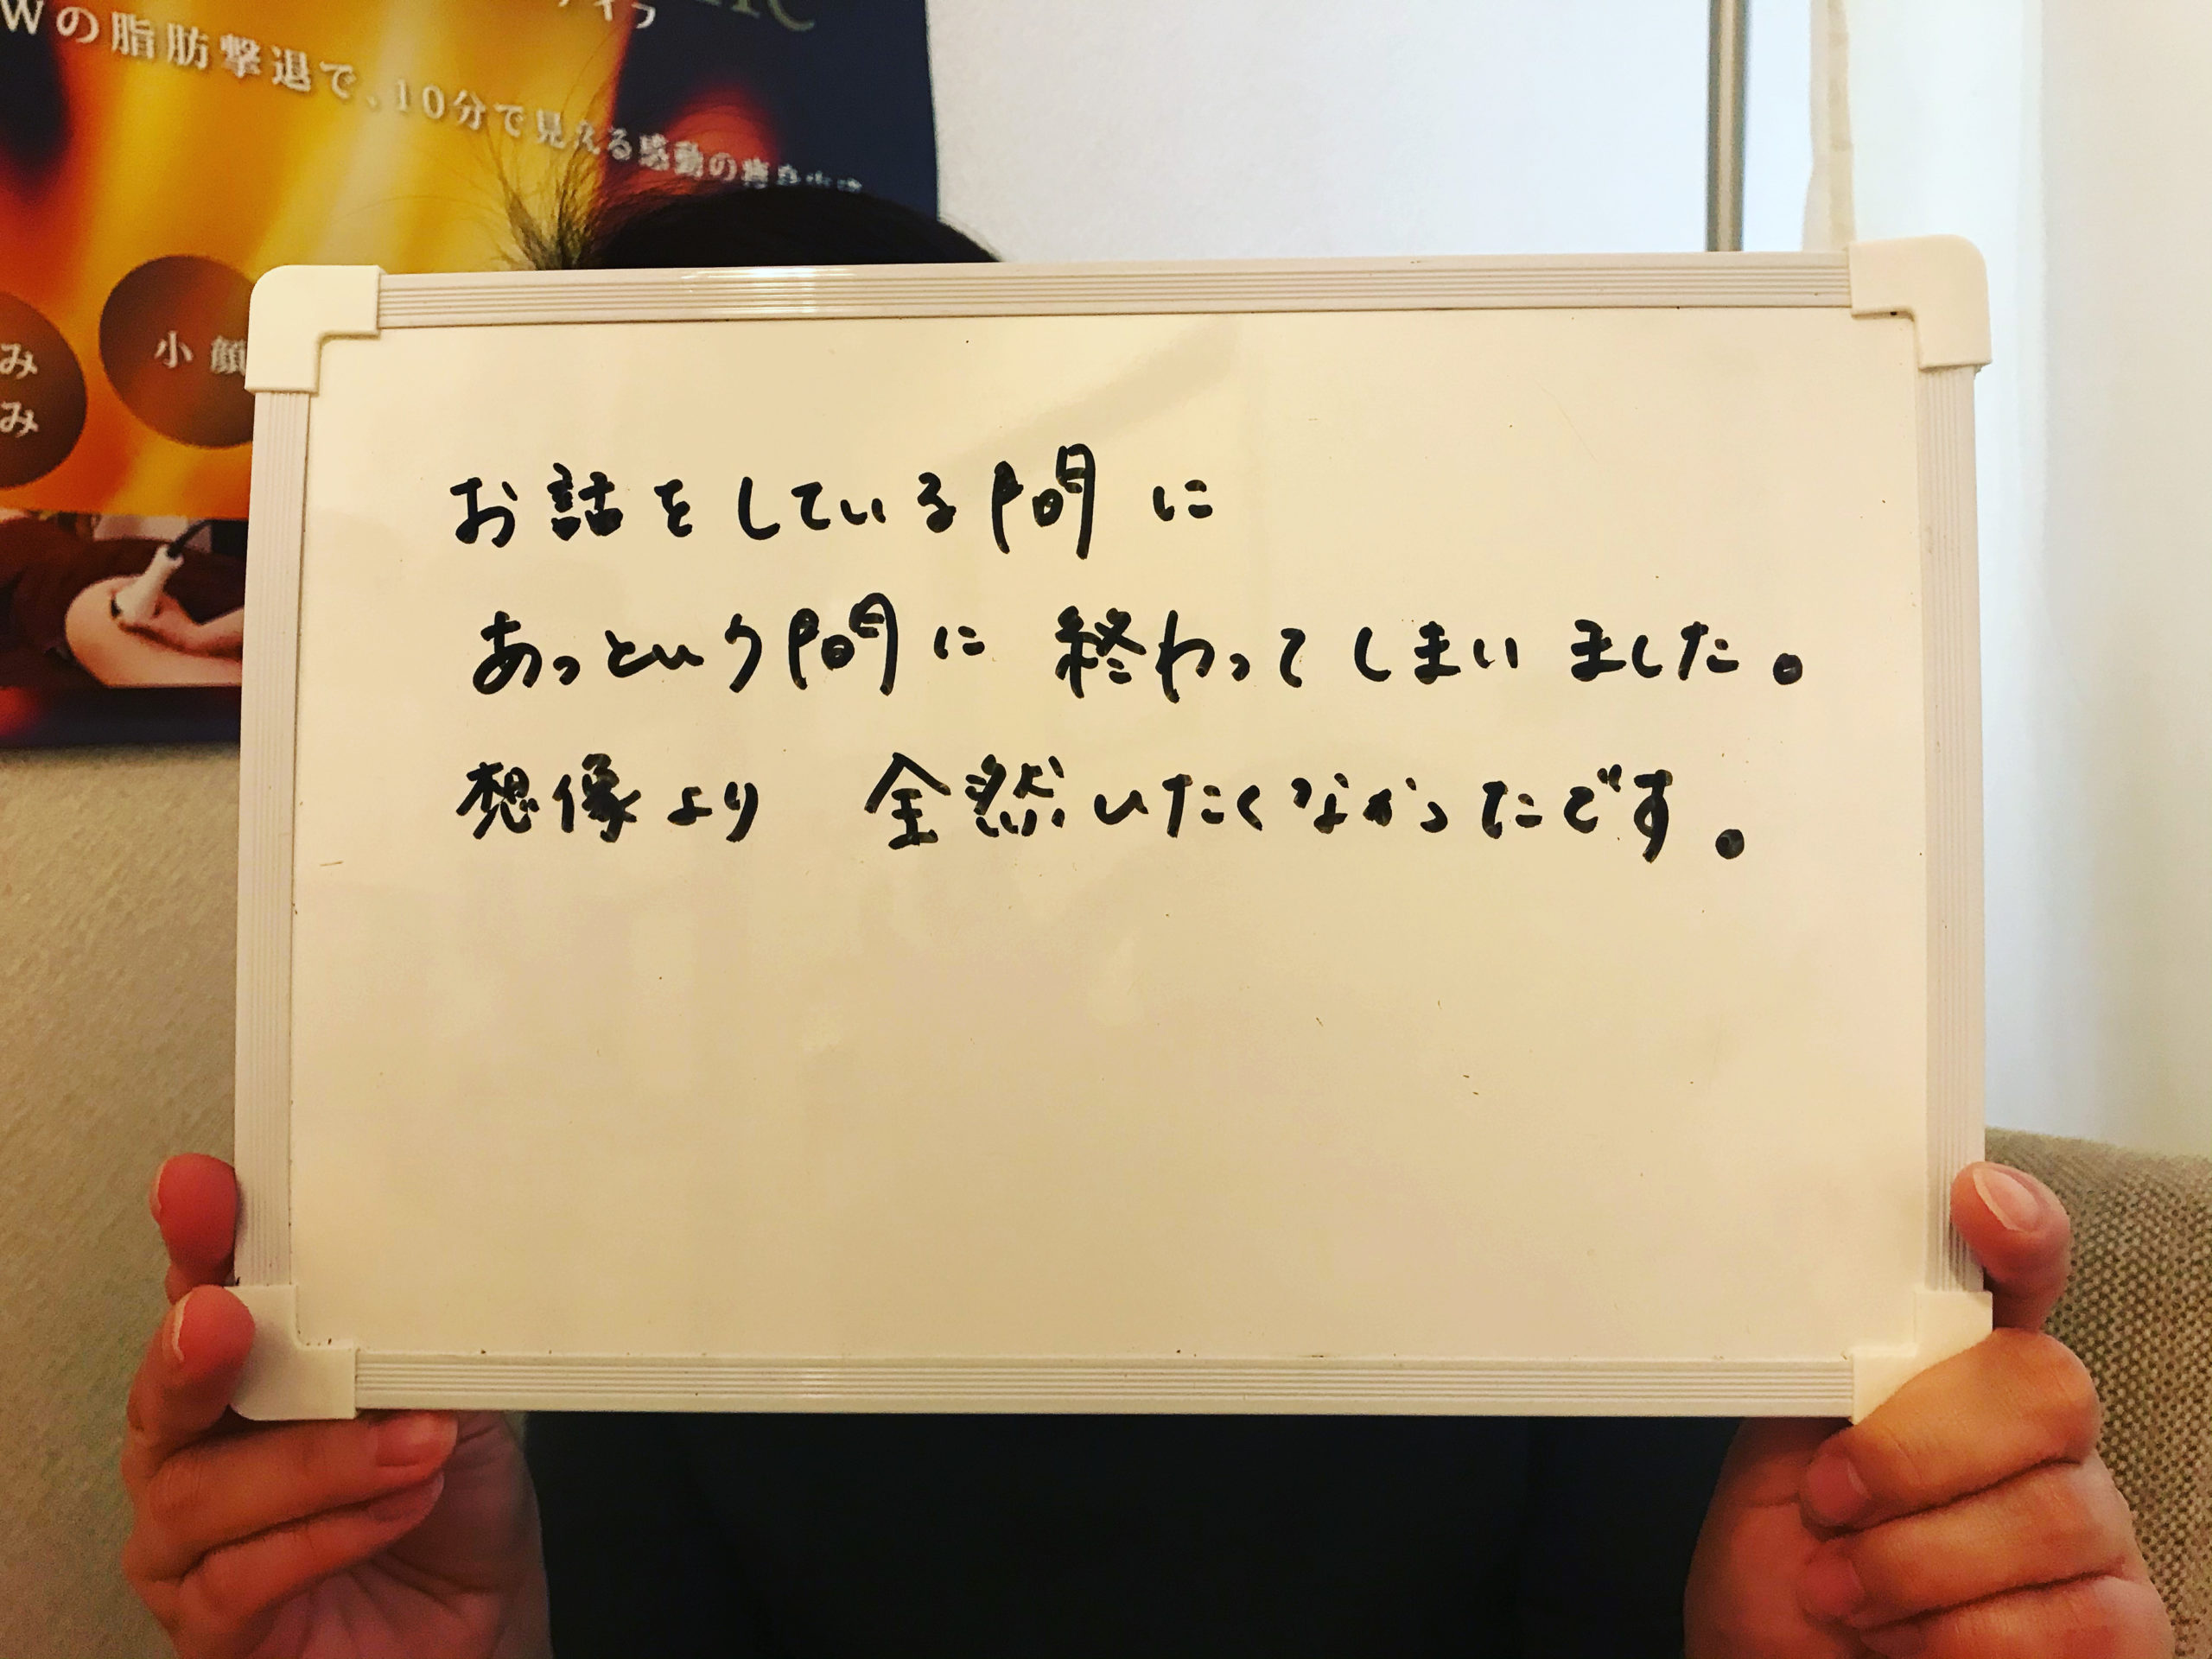 Wの脂肪撃退で、10分で見える感動の痩身
小顔
み
み
お話をしている間に
あっという間に 終わってしまいました。
想像より 全然いたくなかったです。